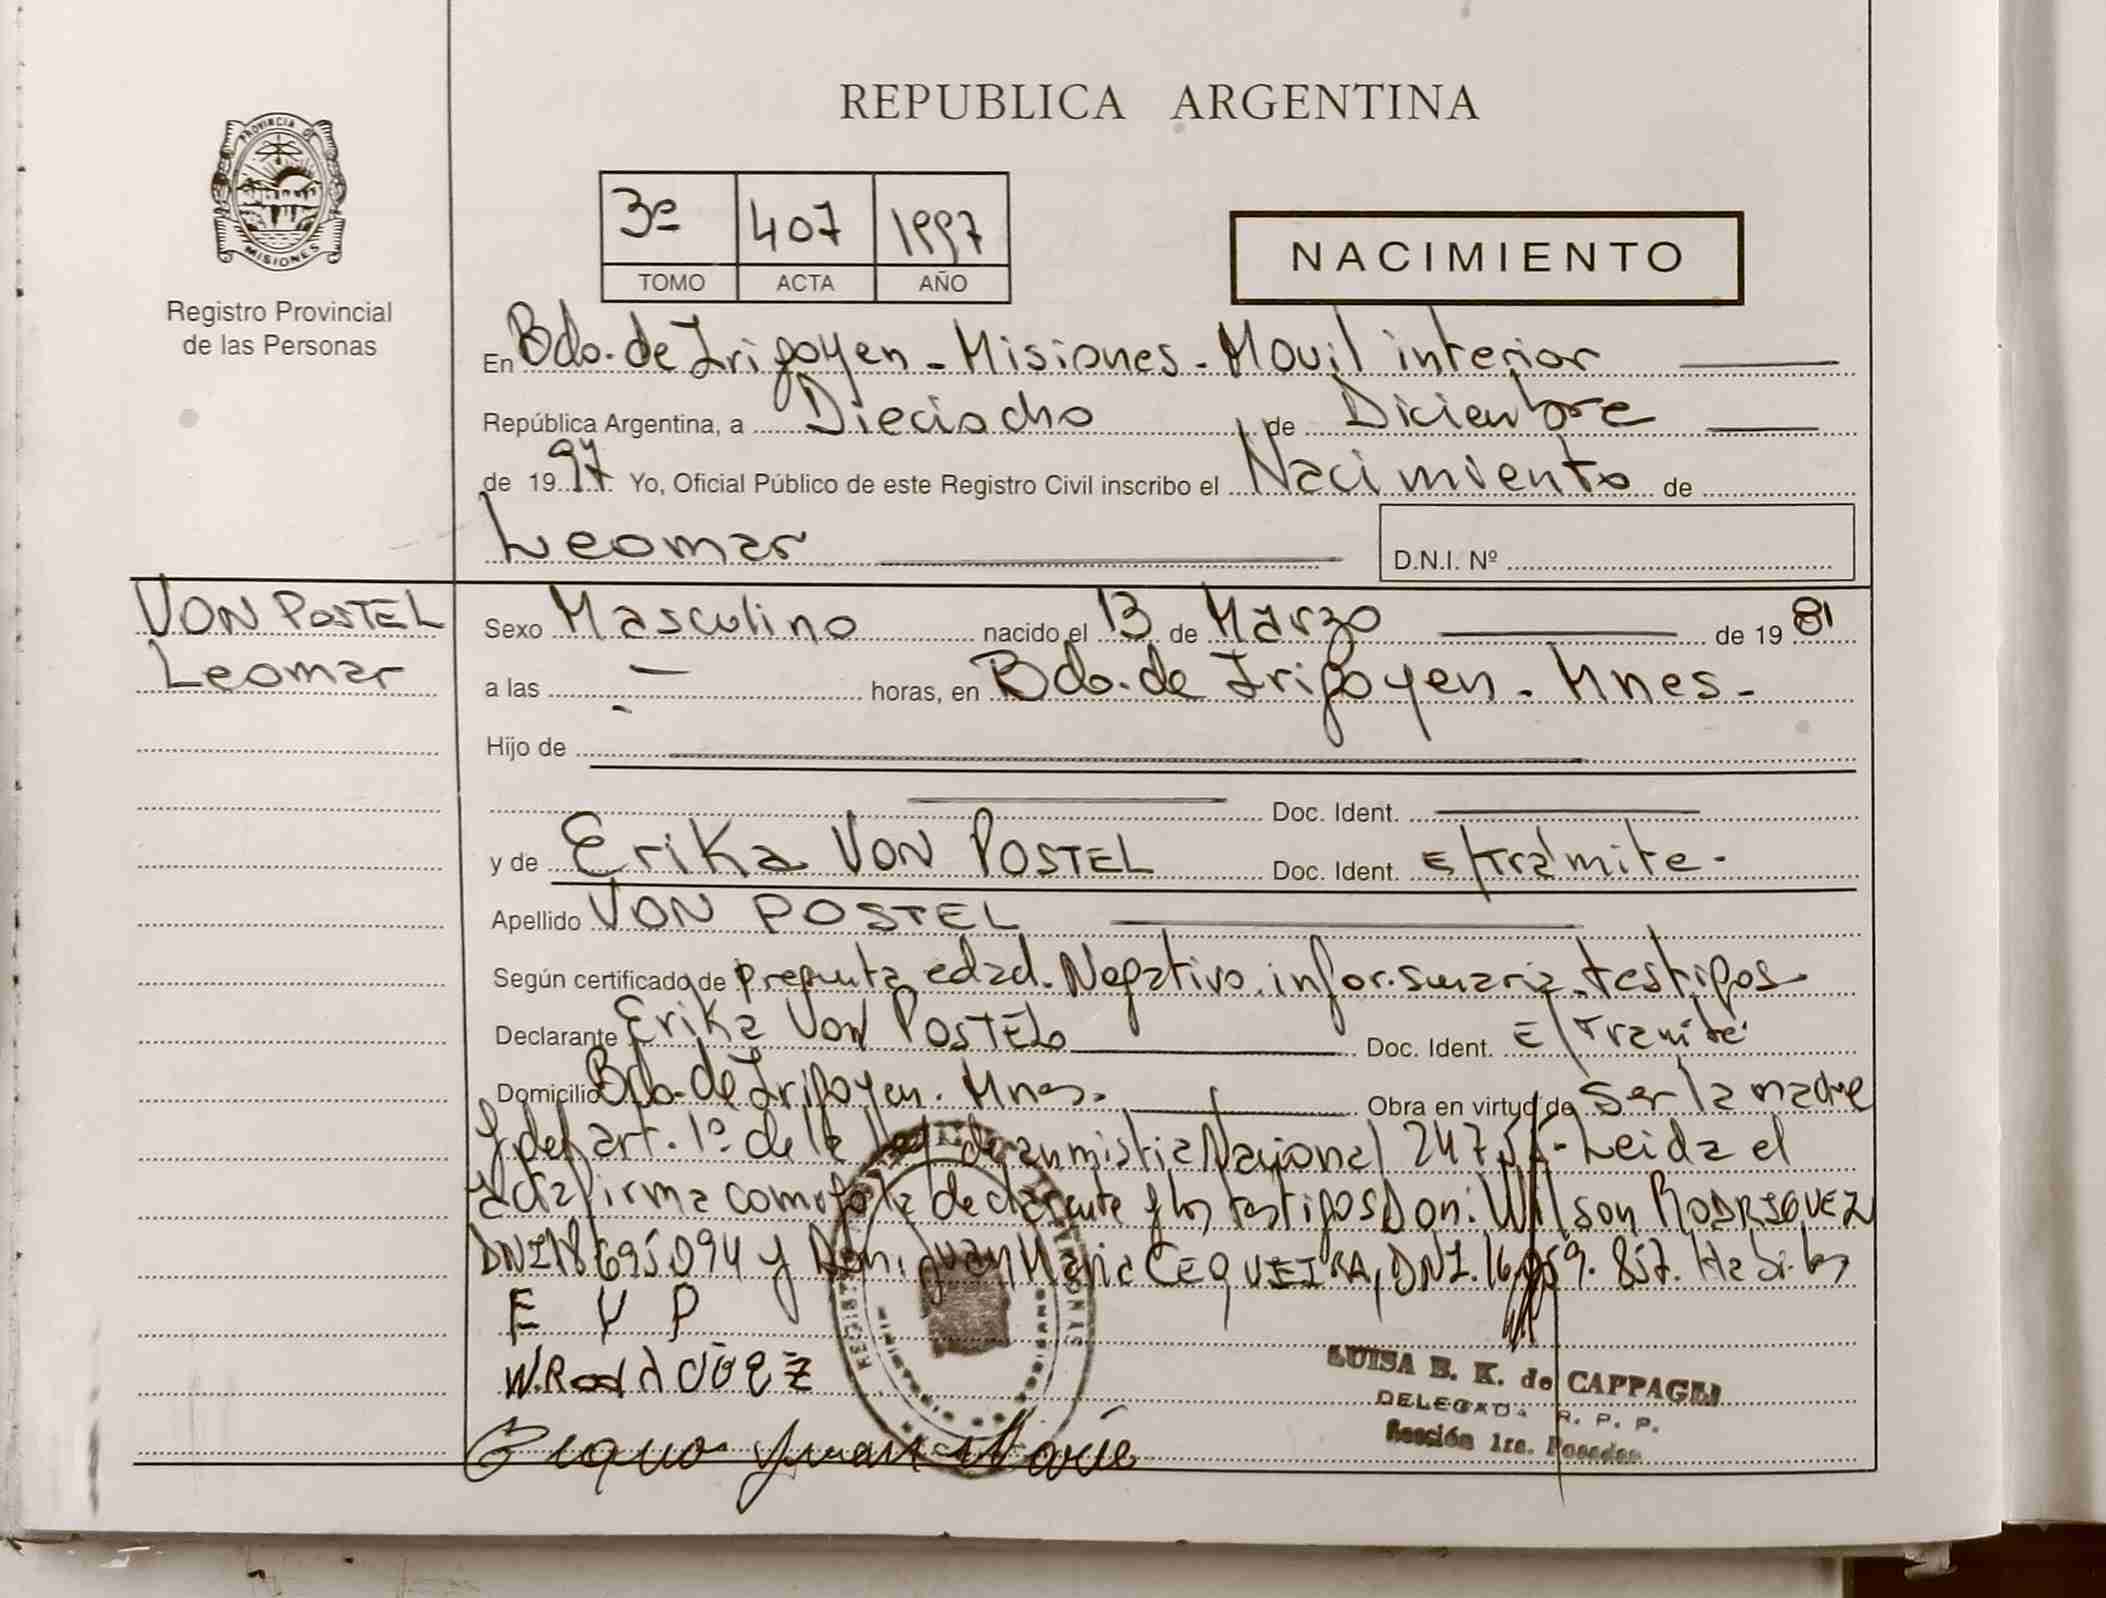 REPUBLICA ARGENTINA
PROVINCIA DE
MISIONES
Registro Provincial
de las Personas
3º 407 1997
TOMO ACTA AÑO
NACIMIENTO
En Bdo. de Irigoyen - Misiones - Movil interior
República Argentina, a Dieciocho de Diciembre
de 1997 Yo, Oficial Público de este Registro Civil inscribo el Nacimiento de
Leomar D.N.I. Nº
VON POSTEL
Leomar
Sexo Masculino nacido el 13 de Marzo de 1981
a las horas, en Bdo. de Irigoyen - Mnes -
Hijo de
Doc. Ident.
y de Erika VON POSTEL Doc. Ident. E/trámite -
Apellido VON POSTEL
Según certificado de presunta edad. Negativo. infor. sumaria. testigos
Declarante Erika VON POSTEL Doc. Ident. E/Tramite
Domicilio Bdo. de Irigoyen. Mnes. Obra en virtud de ser la madre
y del art. 1º de la Ley de anmistia Nacional 24755 - Leida el
acta firma como la declarante y los testigos Don: Wilson RODRIGUEZ
DNI 18695094 y Don: Juan Maria CEQUEIRA, DNI. 16.959.857. Habiles
E V P
W.
Juan Marie
LUISA B. K. de CAPPAGLI
DELEGADA R. P. P.
Sección 1ra. Posadas